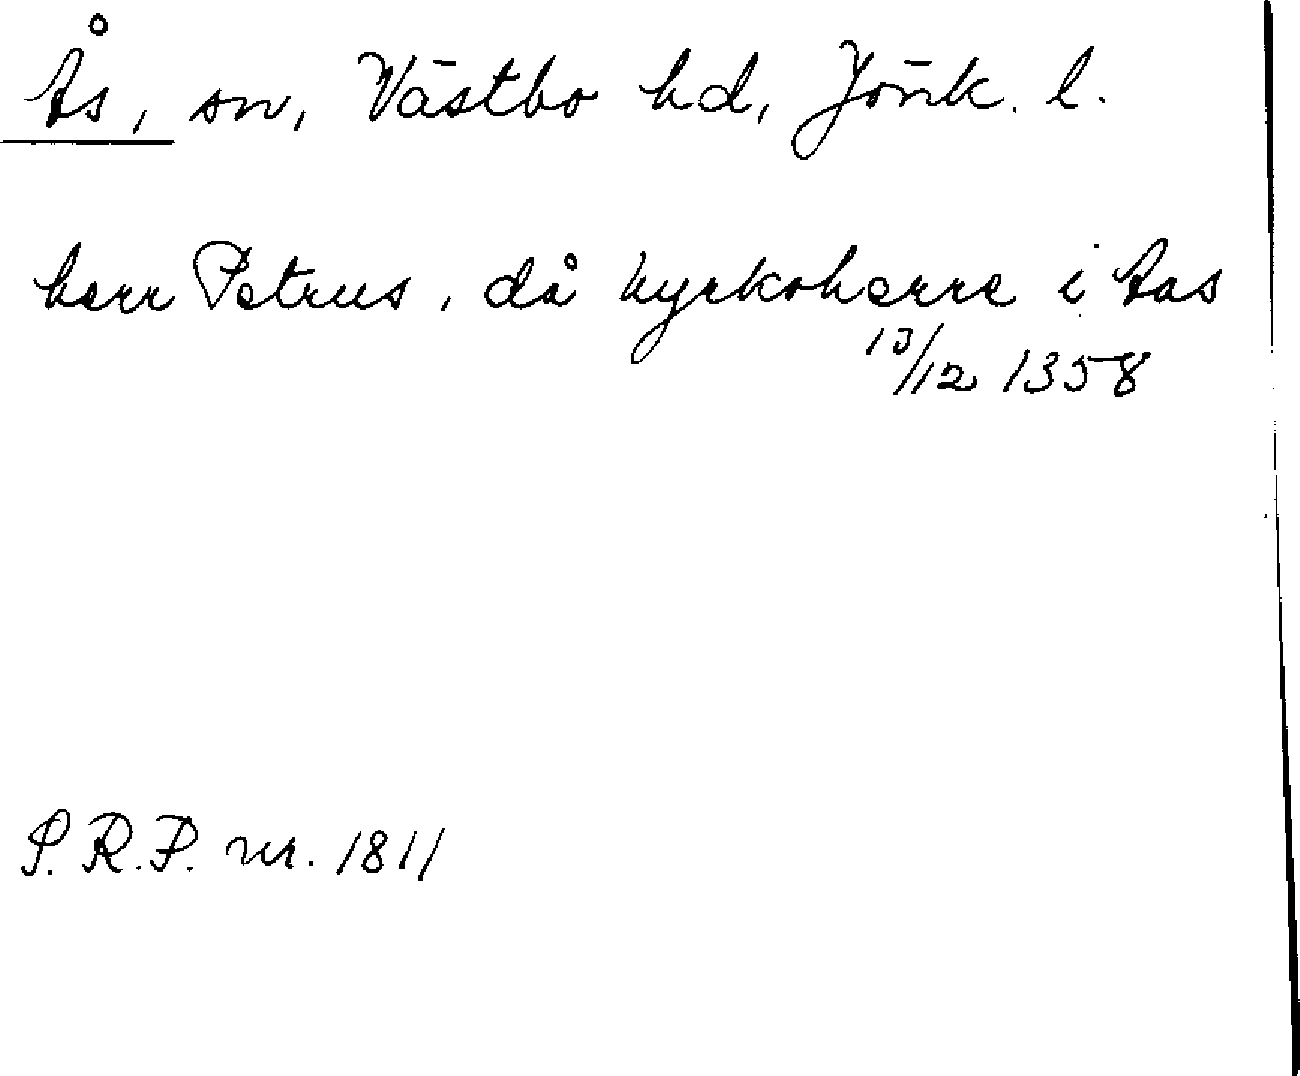 Ås, sn, Västbo hd, Jönk. l.
herr Petrus, då kyrkoherre i Aas
13/12 1358
S.R.P. nr. 1811